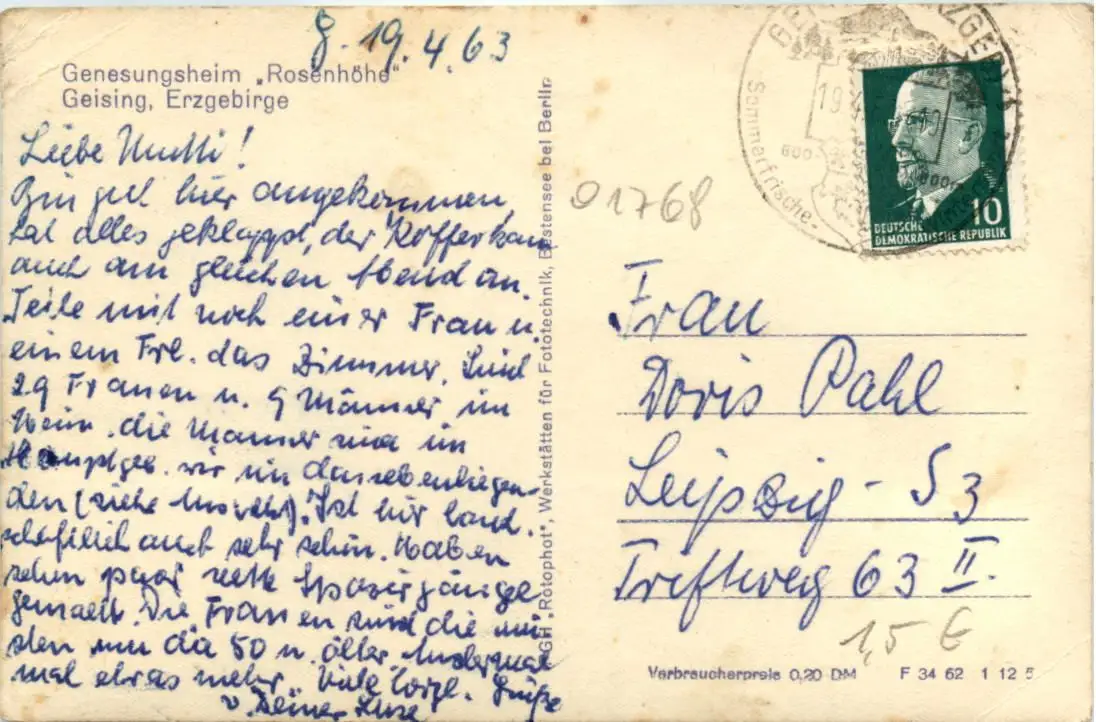 g. 19.4.63
Genesungsheim „Rosenhöhe"
Geising, Erzgebirge
Liebe Mutti!
Bin gut hier angekommen,
hat alles geklappt, der Koffer kam
auch am gleichen Abend an.
Teile mit noch einer Frau u.
einem Frl. das Zimmer. Sind
29 Frauen u. 9 Männer im
Heim, die Männer sind im
Hauptgeb. wir im danebenliegen-
den (siehe Ansicht). Ist hier land-
schaftlich auch sehr schön. Haben
schon paar nette Spaziergänge
gemacht. Die Frauen sind die mei-
sten um da 50 u. älter. Andermal
mal etwas mehr. Viele herzl. Grüße
v. Deiner
GH „Rotophot", Werkstätten für Fototechnik, Bestensee bei Berlin
Sommerfrische-
19.4
600-
800m
DEUTSCHE
DEMOKRATISCHE REPUBLIK
10
01768
Frau
Doris Pahl
Leipzig - S 3
Triftweg 63 II.
1,5 €
Verbraucherpreis 0,20 DM F 34 62 1 12 5